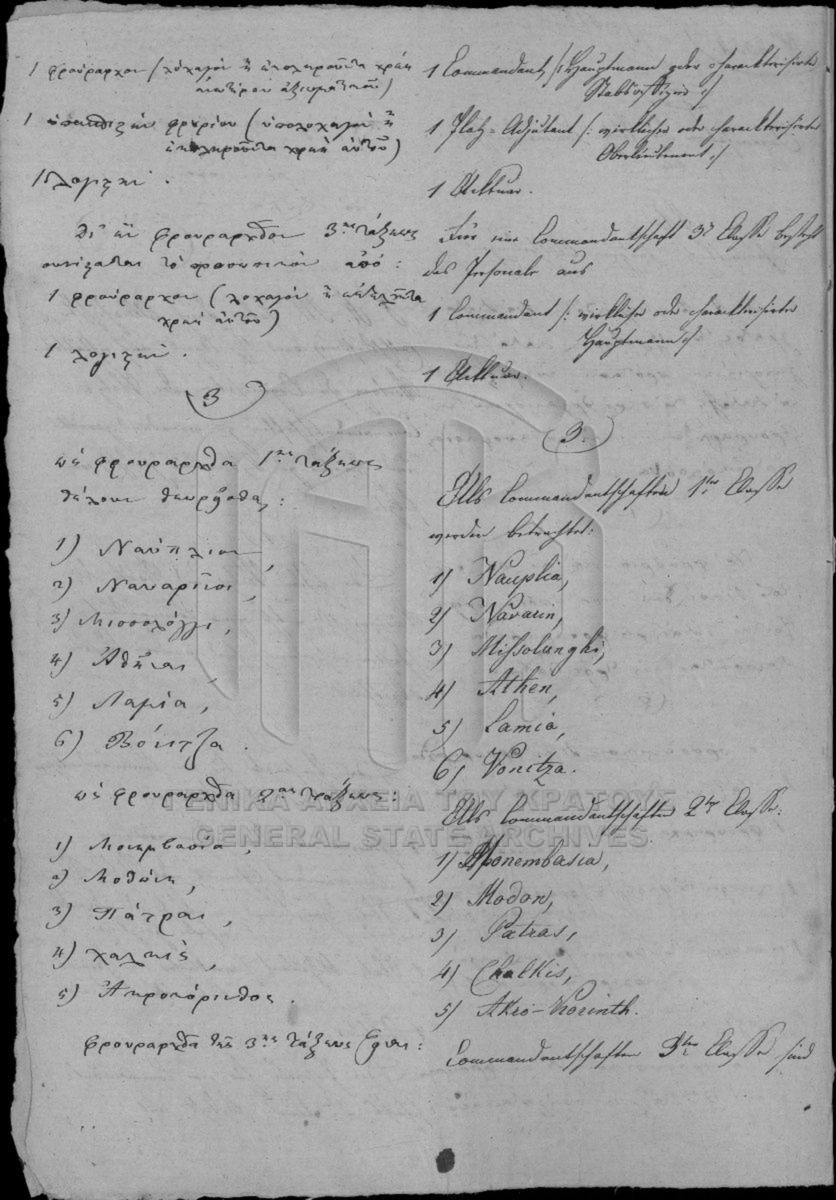 1 φρούραρχον (λοχαγὸν ἢ
ἀξιωματικοῦ)
1 φρουρίου (ὑπολοχαγὸν ἢ
αὐτοῦ)
1 λογιστὴν.
φρουραρχεῖον 3ης τάξεως
τὸ προσωπικὸν ἀπό:
1 φρούραρχον (λοχαγὸν ἢ
αὐτοῦ)
1 λογιστὴν.
3
ὡς φρουραρχεῖα 1ης τάξεως
θέλουν θεωρεῖσθαι:
1) Ναύπλιον,
2) Ναυαρῖνον,
3) Μισσολόγγι,
4) Ἀθῆναι,
5) Λαμία,
6) Βόνιτζα.
ὡς φρουραρχεῖα 2ας τάξεως:
1) Μονεμβασία,
2) Μοθώνη,
3) Πάτραι,
4) Χαλκὶς,
5) Ἀκροκόρινθος.
Φρουραρχεῖα τῆς 3ης τάξεως εἶναι:
1 Commandant /: Hauptmann oder charakterisirter
Stabsoffizier :/
1 Platz-Adjutant /: wirklicher oder charakterisirter
Oberlieutenant :/
1 Aktuar.
Für eine Commandantschaft 3r Classe besteht
das Personale aus
1 Commandant /: wirklicher oder charakterisirter
Hauptmann :/
1 Aktuar.
3.
Als Commandantschaften 1ter Classe
werden betrachtet:
1) Nauplia,
2) Navarin,
3) Missolunghi,
4) Athen,
5) Lamia,
6) Vonitza.
Als Commandantschaften 2ter Classe:
1) Monembasia,
2) Modon,
3) Patras,
4) Chalkis,
5) Akro-Korinth.
Commandantschaften 3ter Classe sind
ΓΕΝΙΚΑ ΑΡΧΕΙΑ ΤΟΥ ΚΡΑΤΟΥΣ
GENERAL STATE ARCHIVES